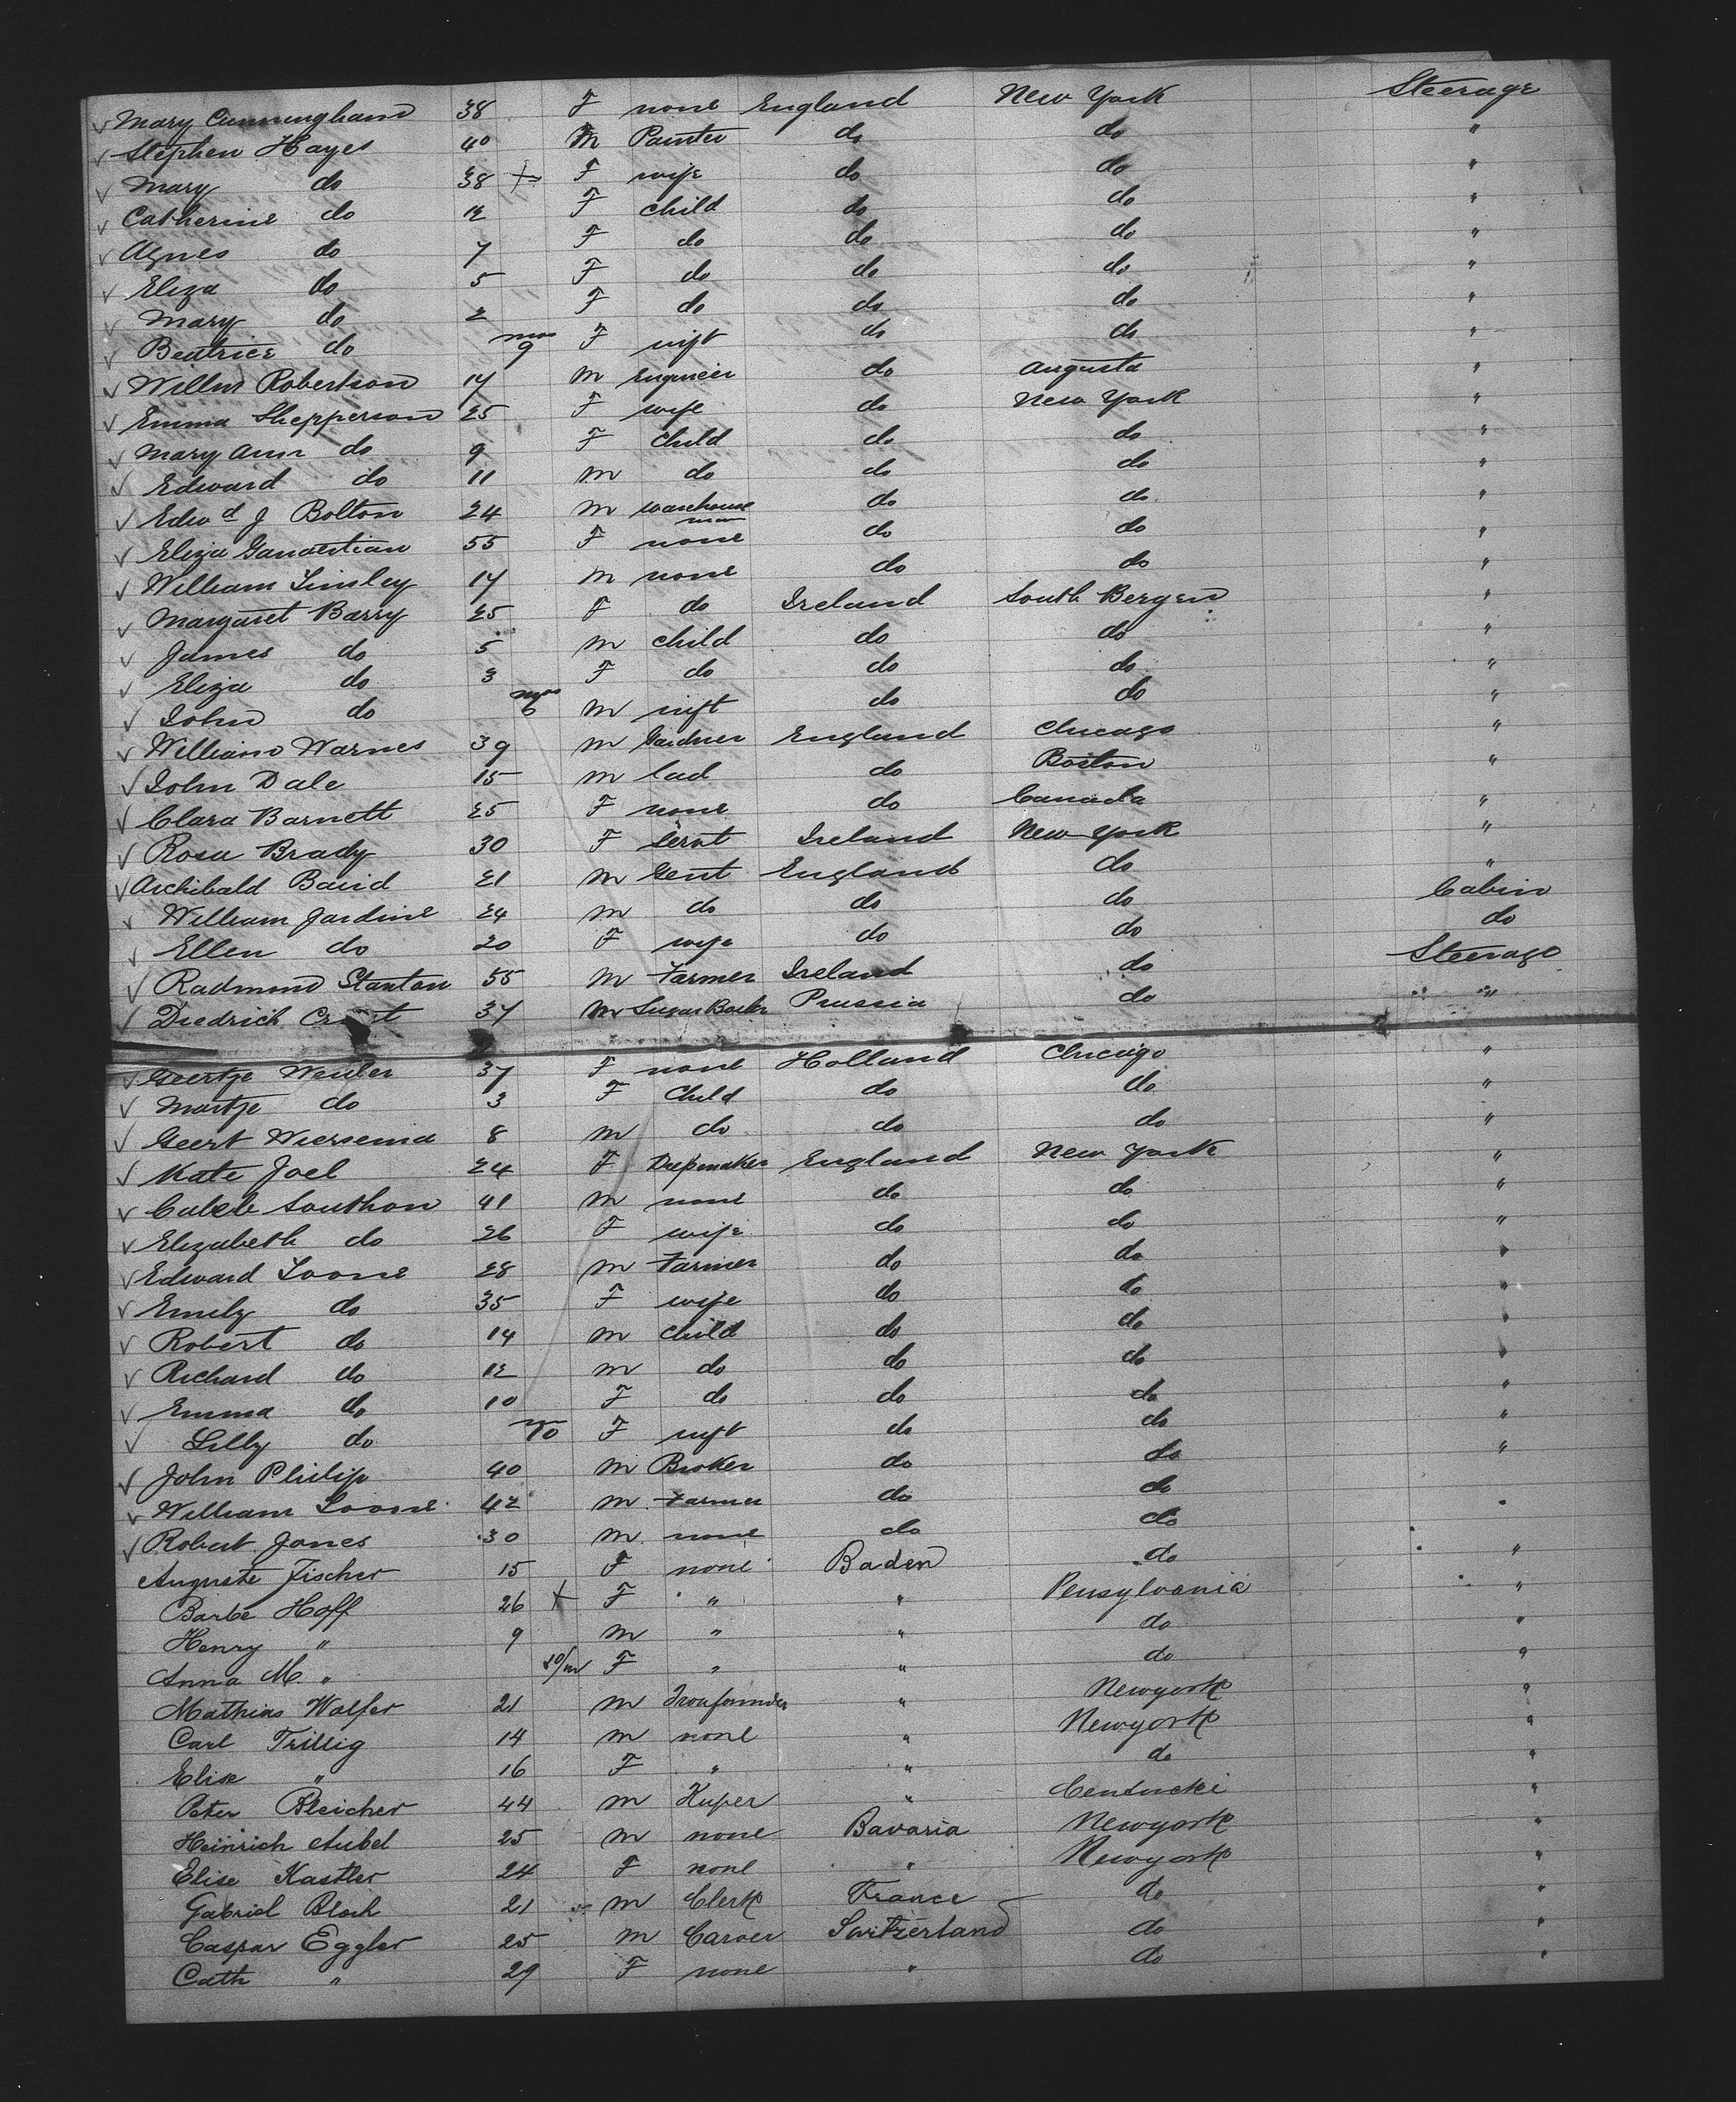 Mary Cunningham 38 F none England New York Steerage
Stephen Hayes 40 M Painter do do "
Mary do 38 + F wife do do "
Catherine do 12 F child do do "
Agnes do 7 F do do do "
Eliza do 5 F do do do "
Mary do 2 F do do do "
Beatrice do mos 9 F inft do do "
Willm Robertson 17 M Engineer do Augusta "
Emma Shepperson 25 F wife do New York "
Mary Ann do 9 F child do do "
Edward do 11 M do do do "
Edwd J Bolton 24 M warehouse man do do "
Eliza 55 F none do do "
William Tinsley 17 M none do do "
Margaret Barry 25 F do Ireland South Bergen "
James do 5 M child do do "
Eliza do 3 F do do do "
John do mos 6 M inft do do "
William Warnes 39 M Gardner England Chicago "
John Dale 15 M lad do Boston "
Clara Barnett 25 F none do Canada "
Rosa Brady 30 F Servt Ireland New York "
Archibald Baird 21 M Gent England do "
William Jardine 24 M do do do Cabin
Ellen do 20 F wife do do do
Radmund Stanton 55 M Farmer Ireland do Steerage
Diedrich 37 M Sugar Baker Prussia do "
Geertje 37 F none Holland Chicago "
Martje do 3 F Child do do "
Geert Wiersema 8 M do do do "
Kate Joel 24 F Dressmaker England New York "
Caleb Southon 41 M none do do "
Elizabeth do 26 F wife do do "
Edward Loone 28 M Farmer do do "
Emily do 35 F wife do do "
Robert do 14 M child do do "
Richard do 12 M do do do "
Emma do 10 F do do do "
Lilly do 10 F inft do do "
John Philip 40 M Broker do do "
William Loone 42 M Farmer do do "
Robert Jones 30 M none do do
Auguste Fischer 15 F none Baden do "
Barbe Hoff 26 + F " " Pensylvania "
Henry " 9 M " " do "
Anna M. " 10/m F " " do "
Mathias Wolfer 21 M Ironfounder " Newyork "
Carl Trillig 14 M none " Newyork "
Elise " 16 F " " do "
Peter Bleicher 44 M Kuper " Centucki "
Heinrich Aubel 25 M none Bavaria Newyork "
Elise Kastler 24 F none " Newyork "
Gabriel Bloch 21 M Clerk France do "
Caspar Eggler 25 M Carver Switzerland do "
Cath " 29 F none " do "